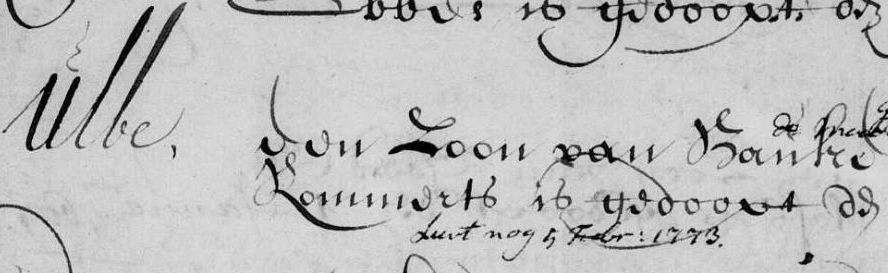 is gedoopt den
Ulbe, den Zoon van Hanke
Rommerts is gedoopt den
Leeft nog 5 Febr: 1773.